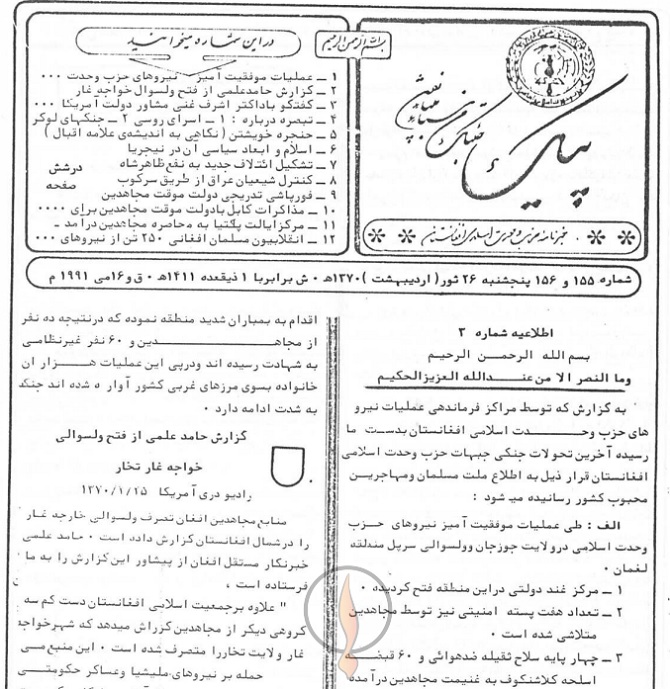 بسم الله الرحمن الرحیم
در این شماره میخوانید
۱ ــ عملیات موفقیت آمیز نیروهای حزب وحدت ۰۰۰
۲ ــ گزارش حامدعلمی از فتح ولسوال خواجه غار
۳ ــ گفتگو باداکتر اشرف غنی مشاور دولت آمریکا ۰۰۰
۴ ــ تبصره درباره : ۱ ــ اسرای روسی ۲ ــ جنگهای لوگر
۵ ــ حنجره خویشتن ( نگاهی به اندیشه‌ی علامه اقبال )
۶ ــ اسلام و ابعاد سیاسی آن در نیجریا
۷ ــ تشکیل ائتلاف جدید به نفع ظاهرشاه
۸ ــ کنترل شیعیان عراق از طریق سرکوب
۹ ــ فورپاشی تدریجی دولت موقت مجاهدین
۱۰ ــ مذاکرات کابل بادولت موقت مجاهدین برای ۰۰۰۰
۱۱ ــ مرکزایالت پکتیا به محاصره مجاهدین درآمد ــ
۱۲ ــ انقلابیون مسلمان افغانی ۲۵۰ تن از نیروهای ۰۰۰
درشش
صفحه
پیام
خبرنامه حزب وحدت اسلامی افغانستان
شماره ۱۵۵ و ۱۵۶ پنجشنبه ۲۶ ثور ( اردیبهشت ) ۱۳۷۰هـ ۰ ش برابربا ۱ ذیقعده ۱۴۱۱هـ ۰ ق و ۱۶می ۱۹۹۱ م
اطلاعیه شماره ۳
بسم الله الرحمن الرحیم
وما النصر الا من عندالله العزیز الحکیم
به گزارش که توسط مراکز فرماندهی عملیات نیرو
های حزب وحدت اسلامی افغانستان بدست ما
رسیده آخرین تحولات جنگی جبهات حزب وحدت اسلامی
افغانستان قرار ذیل به اطلاع ملت مسلمان ومهاجرین
محبوب کشور رسانیده میشود :
الف : طی عملیات موفقیت آمیز نیروهای حزب
وحدت اسلامی درولایت جوزجان وولسوالی سرپل منطقه
لغمان ۰
۱ ــ مرکز غند دولتی دراین منطقه فتح گردیده ۰
۲ ــ تعداد هفت پسته امنیتی نیز توسط مجاهدین
متلاشی شده است ۰
۳ ــ چهار پایه سلاح ثقیله ضدهوائی و ۶۰ قبضه
اسلحه کلاشنکوف به غنیمت مجاهدین درآمده
اقدام به بمباران شدید منطقه نموده که درنتیجه ده نفر
از مجاهدین و ۶۰ نفر غیرنظامی
به شهادت رسیده اند ودرپی این عملیات هزاران
خانواده بسوی مرزهای غربی کشور آواره شده اند جنگ
به شدت ادامه دارد ۰
گزارش حامد علمی از فتح ولسوالی
خواجه غار تخار
رادیو دری آمریکا ۱۳۷۰/۱/۲۵
منابع مجاهدین افغان تصرف ولسوالی خارجه غار
را درشمال افغانستان گزارش داده است ۰ حامد علمی
خبرنگار مستقل افغان از پیشاور این گزارش را به ما
فرستاده است ،
" علاوه برجمعیت اسلامی افغانستان دست کم سه
گروهی دیگر از مجاهدین گزراش میدهد که شهرخواجه
غار ولایت تخاررا متصرف شده است ۰ این منبع می
حمله بر نیروهای ملیشیا وعساکر حکومتی